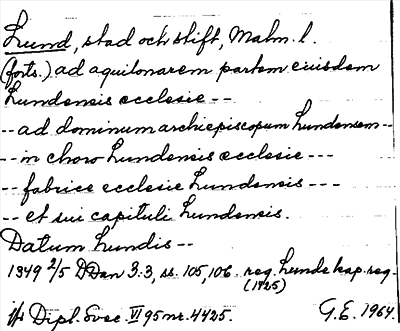 Lund, stad och stift, Malm. l.
(forts.) ad aquilonarem partem eiusdem
Lundensis ecclesie --
-- ad dominum archiepiscopum Lundensem --
-- in choro Lundensis ecclesie ---
-- fabrice ecclesie Lundensis ---
-- et sui capituli Lundensis.
Datum Lundis --
1349 2/5 DDan 3:3, ss. 105, 106. reg. Lunds kap. reg.
(1425)
Dipl. Svec. VI 95 nr. 4425. G.E. 1964.